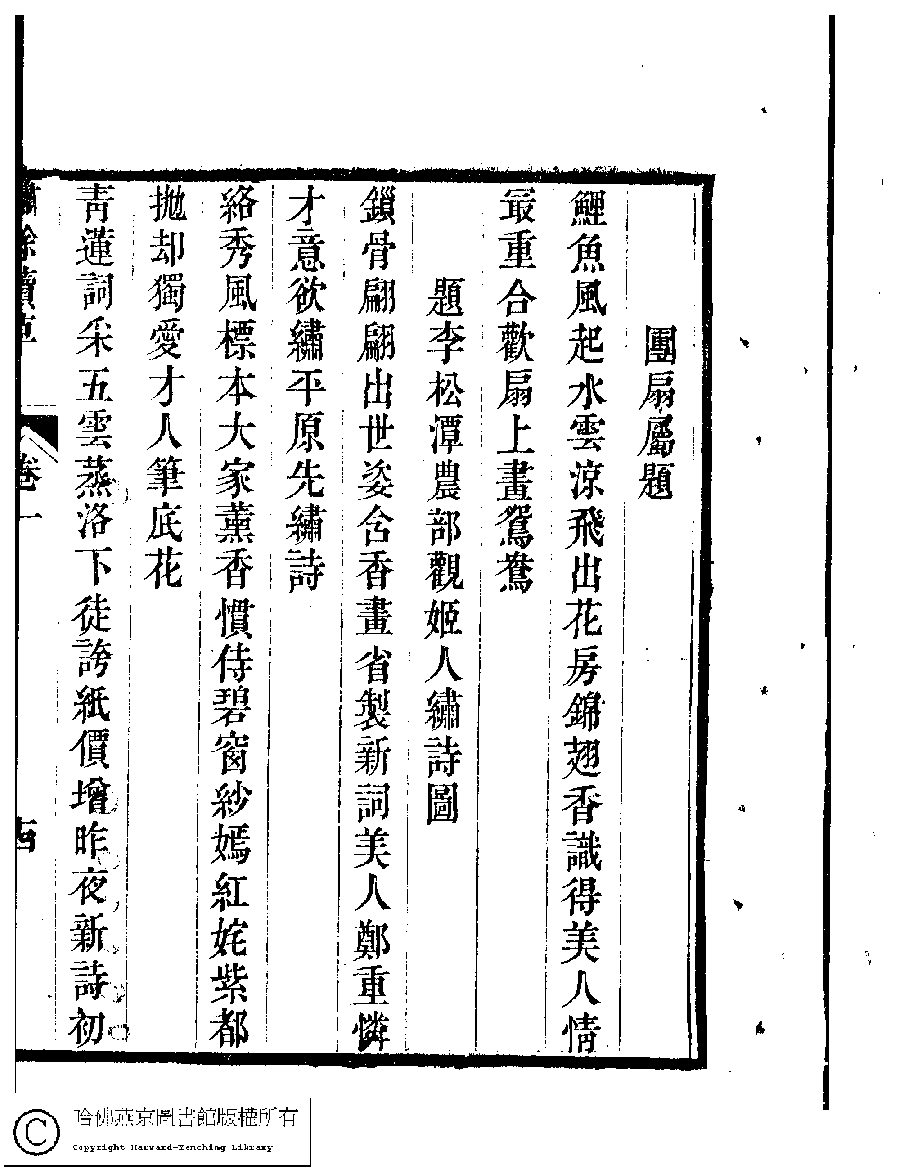 團扇屬題
鯉魚風起水雲涼飛出花房錦翅香識得美人情
最重合歡扇上畫鴛鴦
題李松潭農部觀姬人繡詩圖
鎖骨翩翩出世姿含香畫省製新詞美人鄭重憐
才意欲繡平原先繡詩
絡秀風標本大家薰香慣侍碧窗紗嫣紅姹紫都
拋却獨愛才人筆底花
青蓮詞采五雲蒸洛下徒誇紙價增昨夜新詩初
卷一
哈佛燕京圖書館版權所有
Copyright Harvard-Yenching Library